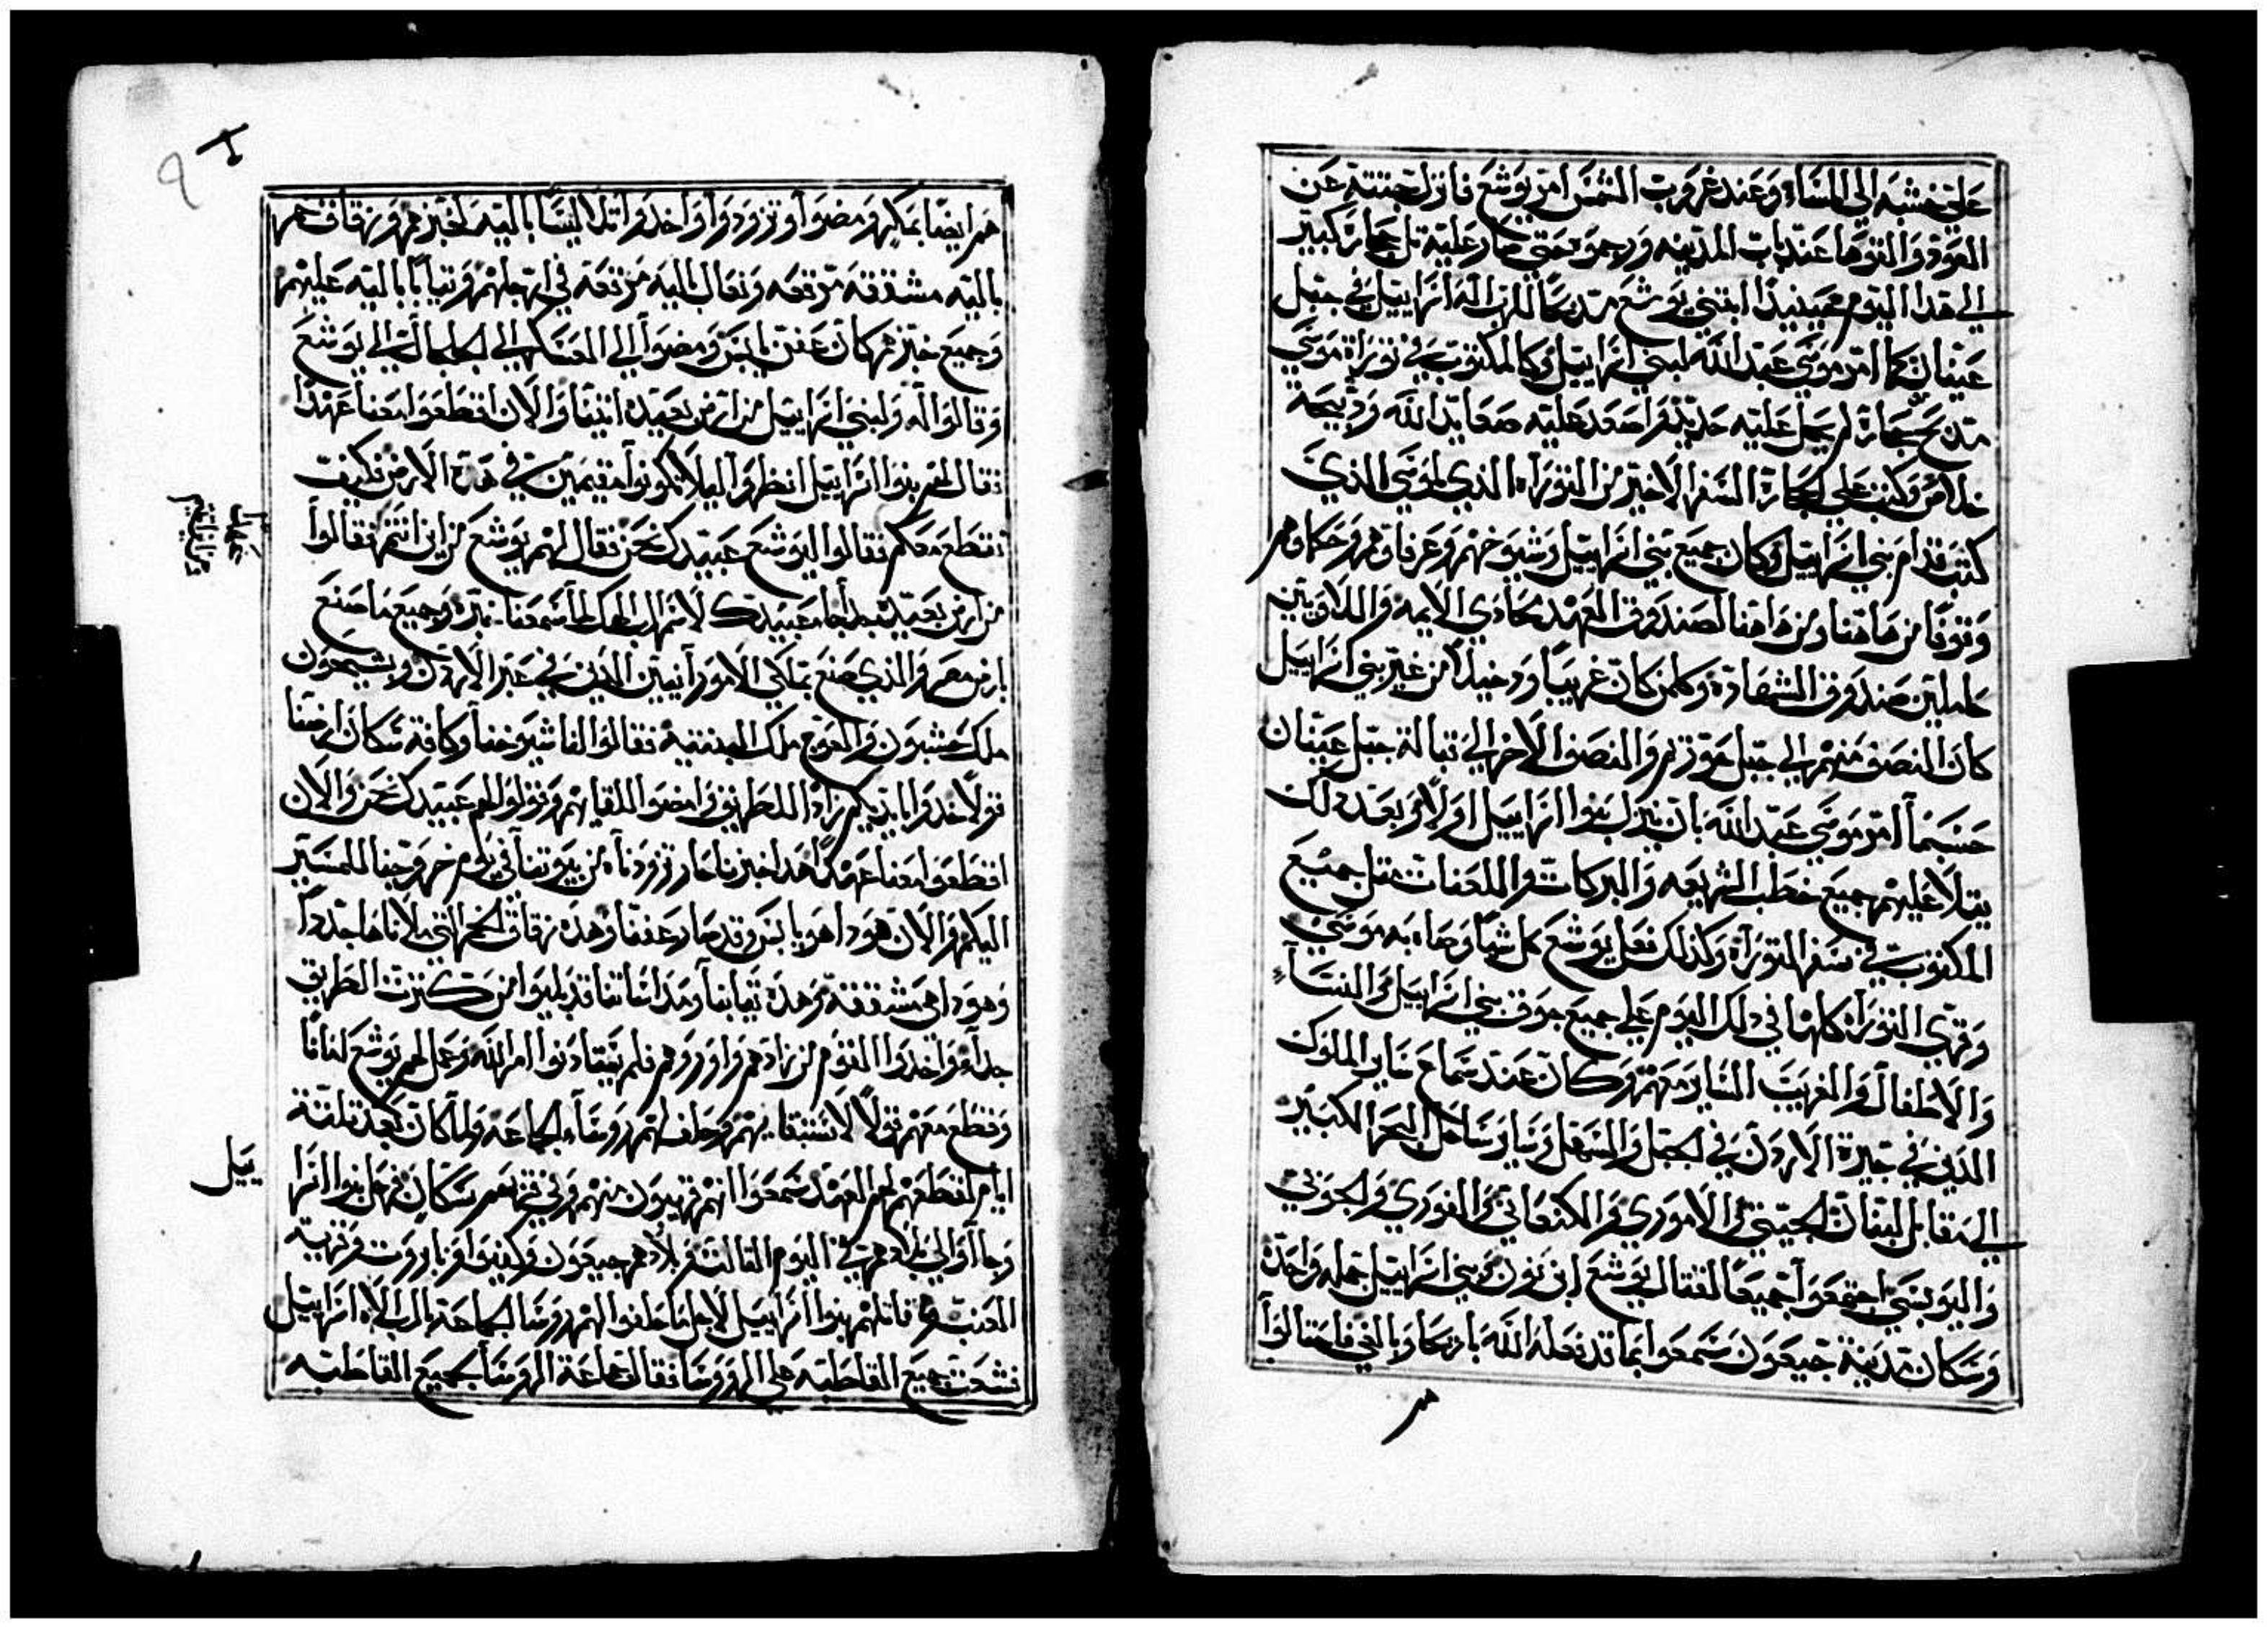 على خشبه الى المساء وعند غروب الشمس امر يوشع فانزلت جتته عن
العود والقوها عند باب المدينه ورجموه حتى صار عليه تل حجاره كبير
الى هدا اليوم حينيدا ابتنى يوشع مدبحا للرب اله اسراييل في جبل
عيبان كما امر موسى عبد الله لبني اسراييل وكالمكتوب في توراة موسى
مدبح حجارة لم يعمل عليه حديد واصعد عليه صعايد الله ودبيحة
خلاص وكتب على الحجارة السفر الاخير من التوراه الذي لموسى الذي
كتب قدام بني اسراييل وكان جميع بني اسراييل وشيوخهم وعرفاوهم وحكامهم
وقوفا من هاهنا ومن هاهنا لصندوق العهد بحادي الايمه واللاويين
حاملين صندوق الشهادة وكلمن كان غريبا ودخيلا من غير بني اسراييل
كان النصف منهم الى جبل موززيم والنصف الاخر الى قبالة جبل عيبان
حسبما امر موسى عبد الله بان ينزل بنوا اسراييل اولا وبعد دلك
يتلا عليهم جميع خطب الشريعه والبركات واللعنات مثل جميع
المكتوب في سفر التوراة وكذلك فعل يوشع كل شيا وصاه به موسى
وقرى التوراة كلها في دلك اليوم على جميع جوق بني اسراييل والنسآء
والاطفال والغريب الساير معهم وكان عند سماع ساير الملوك
الذين في جيزة الاردن في الجبل والسهل وساير ساحل البحر الكبير
الى مقابل لبنان الحيثي والاموري والكنعاني والفوري والجوني
واليوبسي اجتمعوا جميعا لقتال يوشع ابن نون وبني اسراييل جمله واحدة
وسكان مدينة جيعون سمعوا بما قد فعله الله باريحا وبالغي فاحتالوا
هم
هم ايضا بمكر ومضوا وتزودوا واخدوا تلاليسا باليه لخبزهم وزقاق خمر
باليه مشققه مرقعه ونعال باليه مرقعه في ارجلهم وتيابا باليه عليهم
وجميع خبزهم كان عفن يابس ومضوا الى العسكر الى الجلجال الى يوشع
وقالوا له ولبني اسراييل من ارض بعيده اتينا والان اقطعوا معنا عهدا
فقال لهم بنوا اسراييل انظروا ليلا تكونوا مقيمين في هده الارض فكيف
نقطع معكم فقالوا ليوشع عبيدك نحن فقال لهم يوشع من اين انتم فقالوا
من ارض بعيده جدا جا عبيدك لاسم الرب الهك لما سمعنا خبره وجميع ما صنع
بارض مصر والذي صنع بملكي الامورانيين الدين في عبر الاردن وبسيحون
ملك حشبون والعوج ملك البتنيه فقالوا لنا شيوخنا وكافة سكان ارضنا
قولا خدوا بايديكم زادا للطريق وامضوا للقايهم وقولوا لهم عبيدك نحن والان
اقطعوا معنا عهدا هدا خبزنا حار تزودناه من بيوتنا في يوم خروجنا للمسير
اليكم والان هودا هو يابس وقد صار عفنا وهده زقاق الخمر التي ملاناها جددا
وهودا هي مشققه وهده تيابنا ومداساتنا قد بليوا من كترت الطريق
جدا واخدوا القوم من زادهم واوردوهم فلم يتقادنوا امر الله وعمل لهم يوشع امانا
وقطع معهم قولا لاستبقايهم وحلف لهم روساء الجماعه ولما كان بعد تلتة
ايام لقطعهم لهم العهد سمعوا انهم قريبون منهم وفي تخمهم سكان فرحل بنوا اسرا
ييل
وجاآوا الى بلادهم في اليوم التالت وبلادهم جيعون وكفيوا وباروت وقرية
العنب وما قاتلهم بنوا اسراييل لاجل ما حلفوا لهم روسا الجماعة بالرب الاه اسراييل
فشغبت جميع القاطبه على الروسا فقالت جماعة الروسا لجميع القاطبه